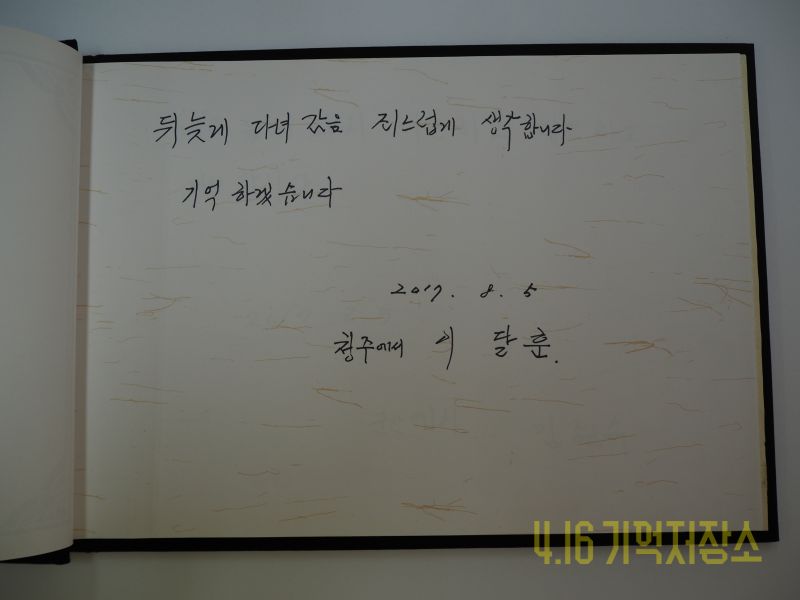 뒤늦게 다녀 갔음 죄스럽게 생각합니다
기억 하겠습니다
2017. 8. 5
청주에서 이 달 훈.
4.16 기억저장소